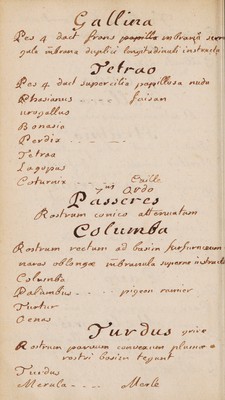 Gallina
Pes 4 dact frons papilla mbrana
gula mbrana duplici longitudinali instructa
Tetrao
Pes 4 dact supercilia papillosa nuda
Phasianus - - - faisan
urogallus
Bonasio
Perdix - - -
Tetrao
Lagopus
Coturnix - - - - Caille
7us Ordo
Passeres
Rostrum conico attenuatum
Columba
Rostrum rectum ad basim furfuraceum
nares oblongæ mbranula superne instructa
Columba
Palumbus - - - pigeon ramier
Turtur
Oenas
Turdus grive
Rostrum parvum convexum plumæ
rostri basim tegunt
Turdus
Merula - - - - Merle